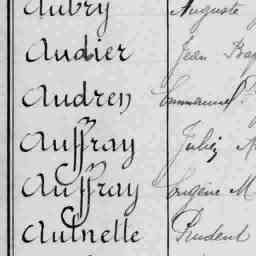 Aubry Auguste
Audier Jean Bap
Audren Emmanuel
Auffray Julien M
Auffray Eugène M
Autnette Prudent